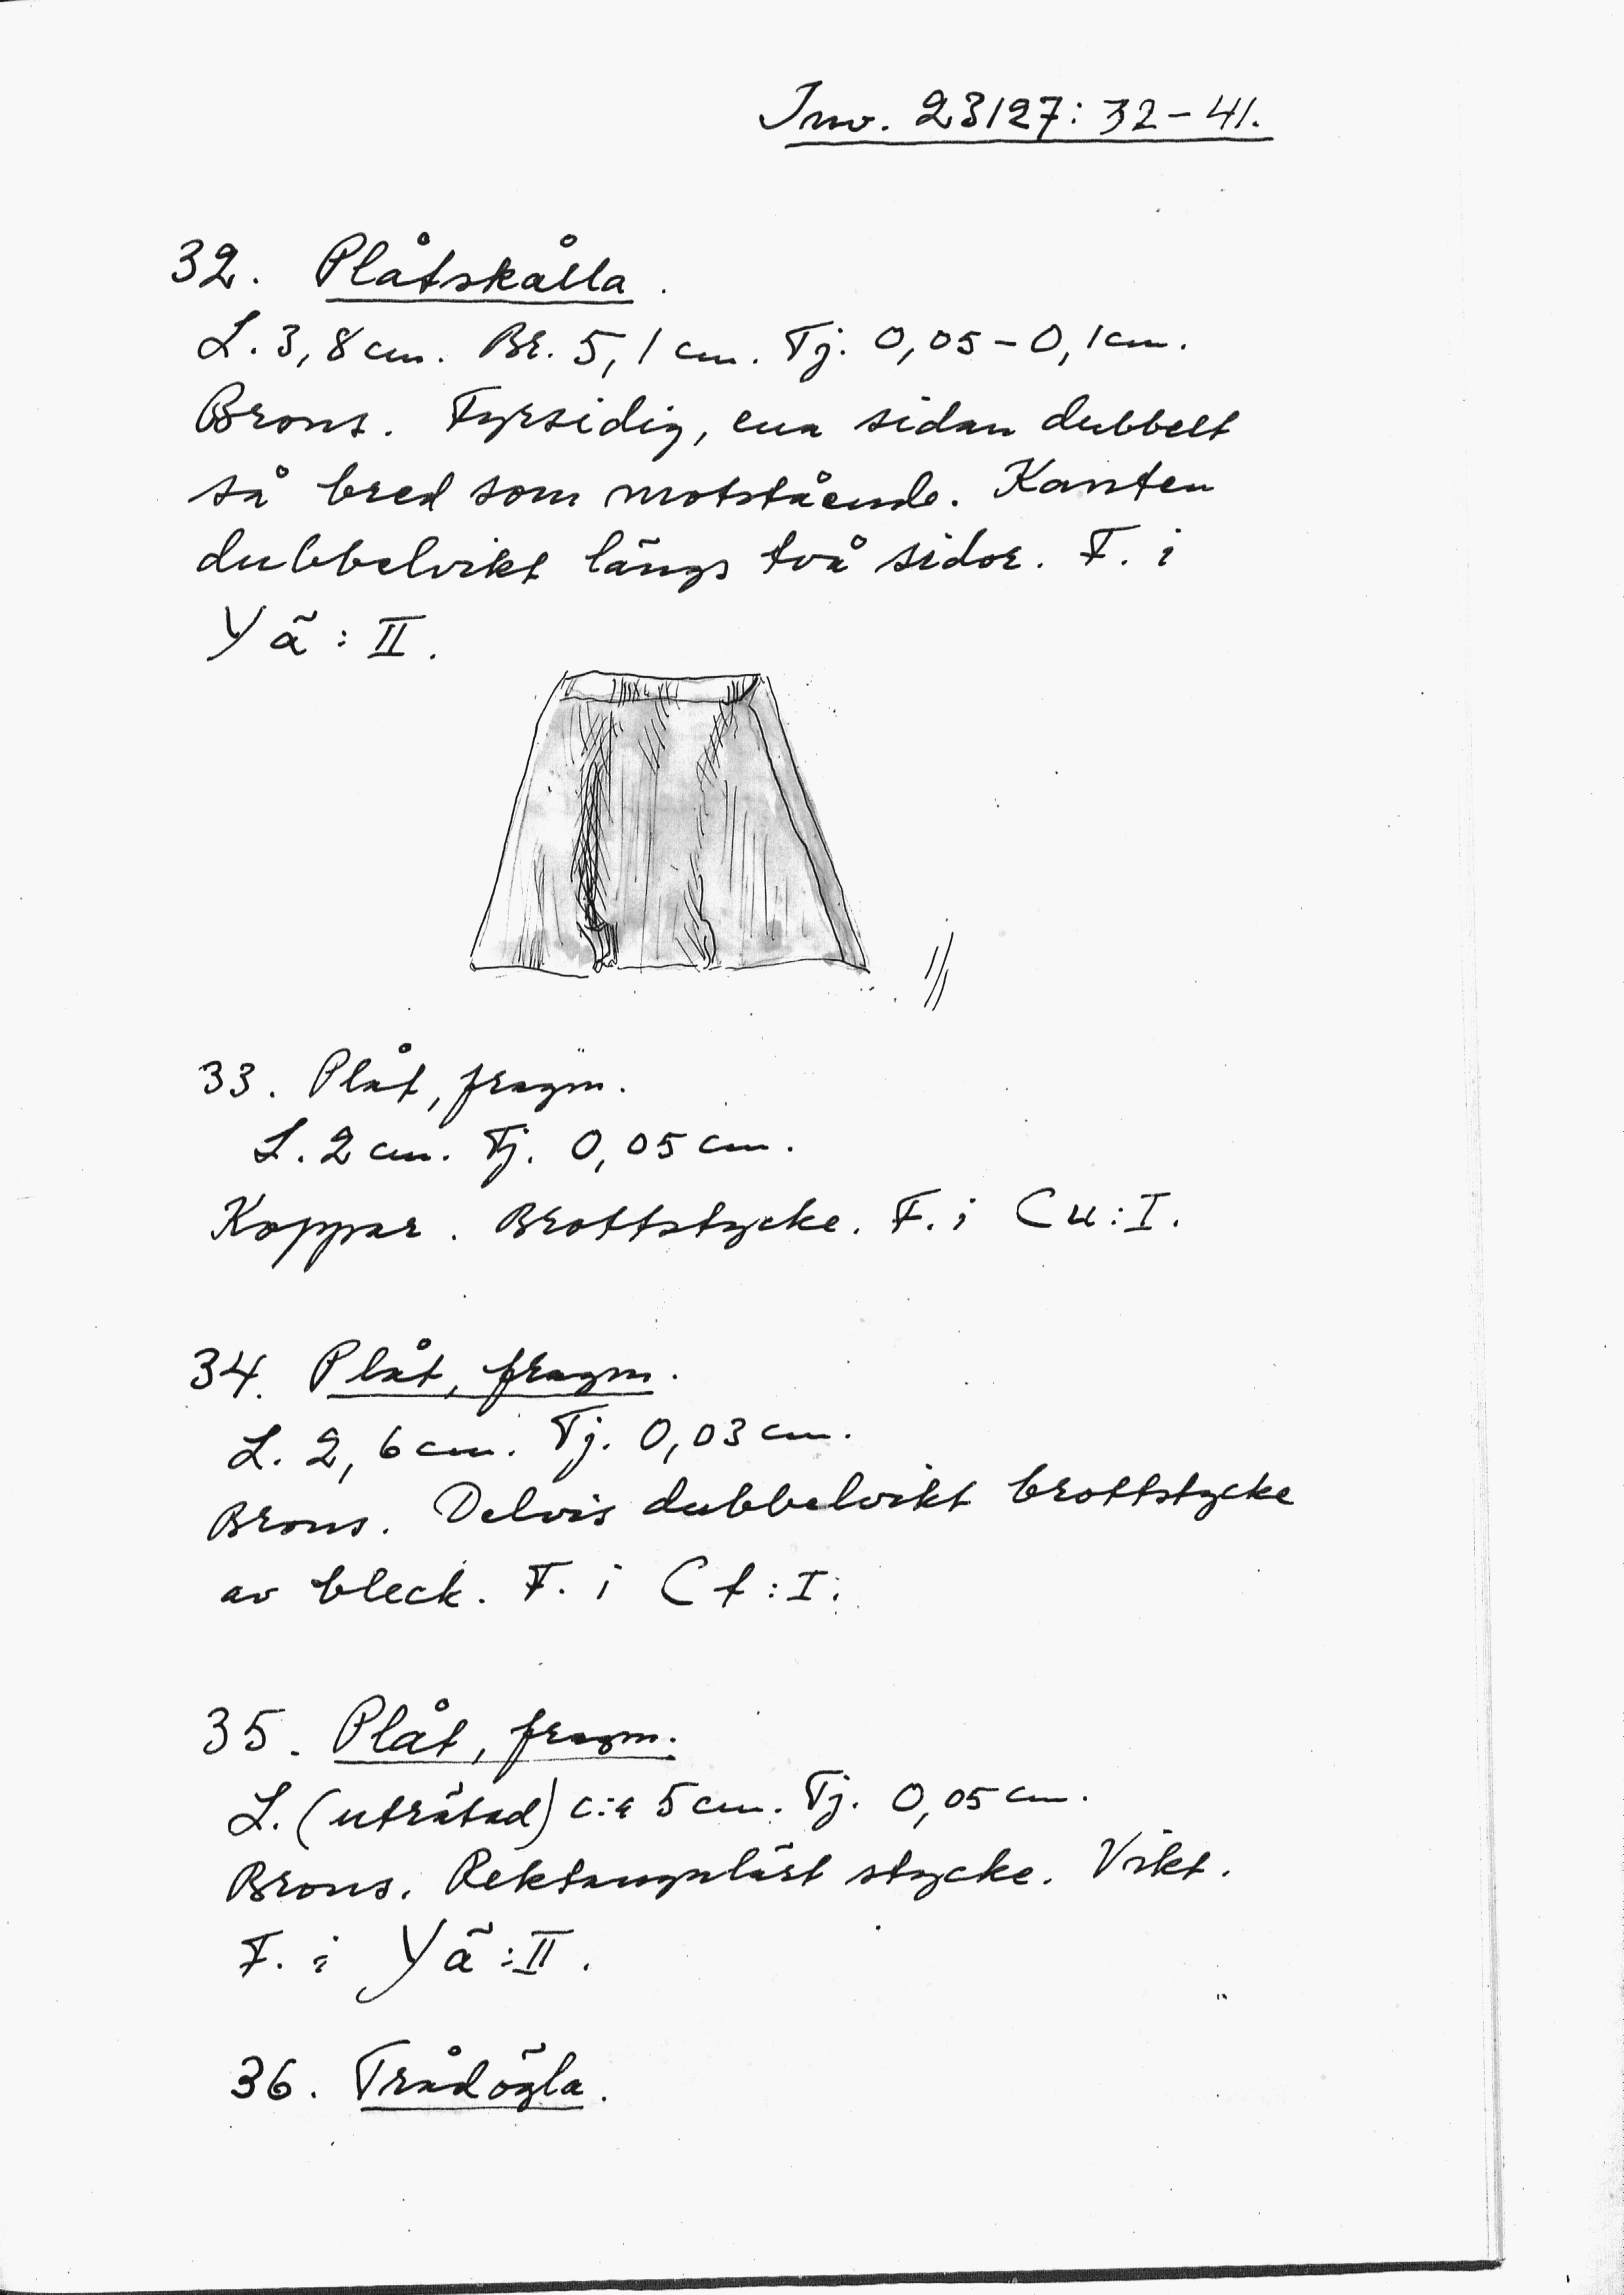 Inv. 23127: 32-41.
32. Plåtskålla.
L. 3,8 cm. Br. 5,1 cm. Tj. 0,05-0,1 cm.
Brons. Fyrsidig, ena sidan dubbelt
så bred som motstående. Kanten
dubbelvikt längs två sidor. F. i
Yä: II.
33. Plåt, fragm.
L. 2 cm. Tj. 0,05 cm.
Koppar. Brottstycke. F. i Cu: I.
34. Plåt, fragm.
L. 2,6 cm. Tj. 0,03 cm.
Brons. Delvis dubbelvikt brottstycke
av bleck. F. i Ct: I.
35. Plåt, fragm.
L. (uträtad) c:a 5 cm. Tj. 0,05 cm.
Brons. Rektangulärt stycke. Vikt.
F. i Yä: II.
36. Trådögla.